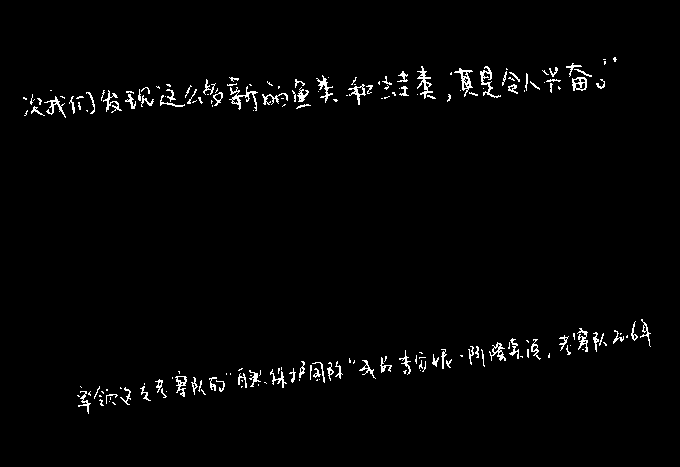 次我们发现这么多新的鱼类和蛙类，真是令人兴奋。”
率领这支考察队的“自然保护国际”成员李安妮·阿隆索说，考察队2006年